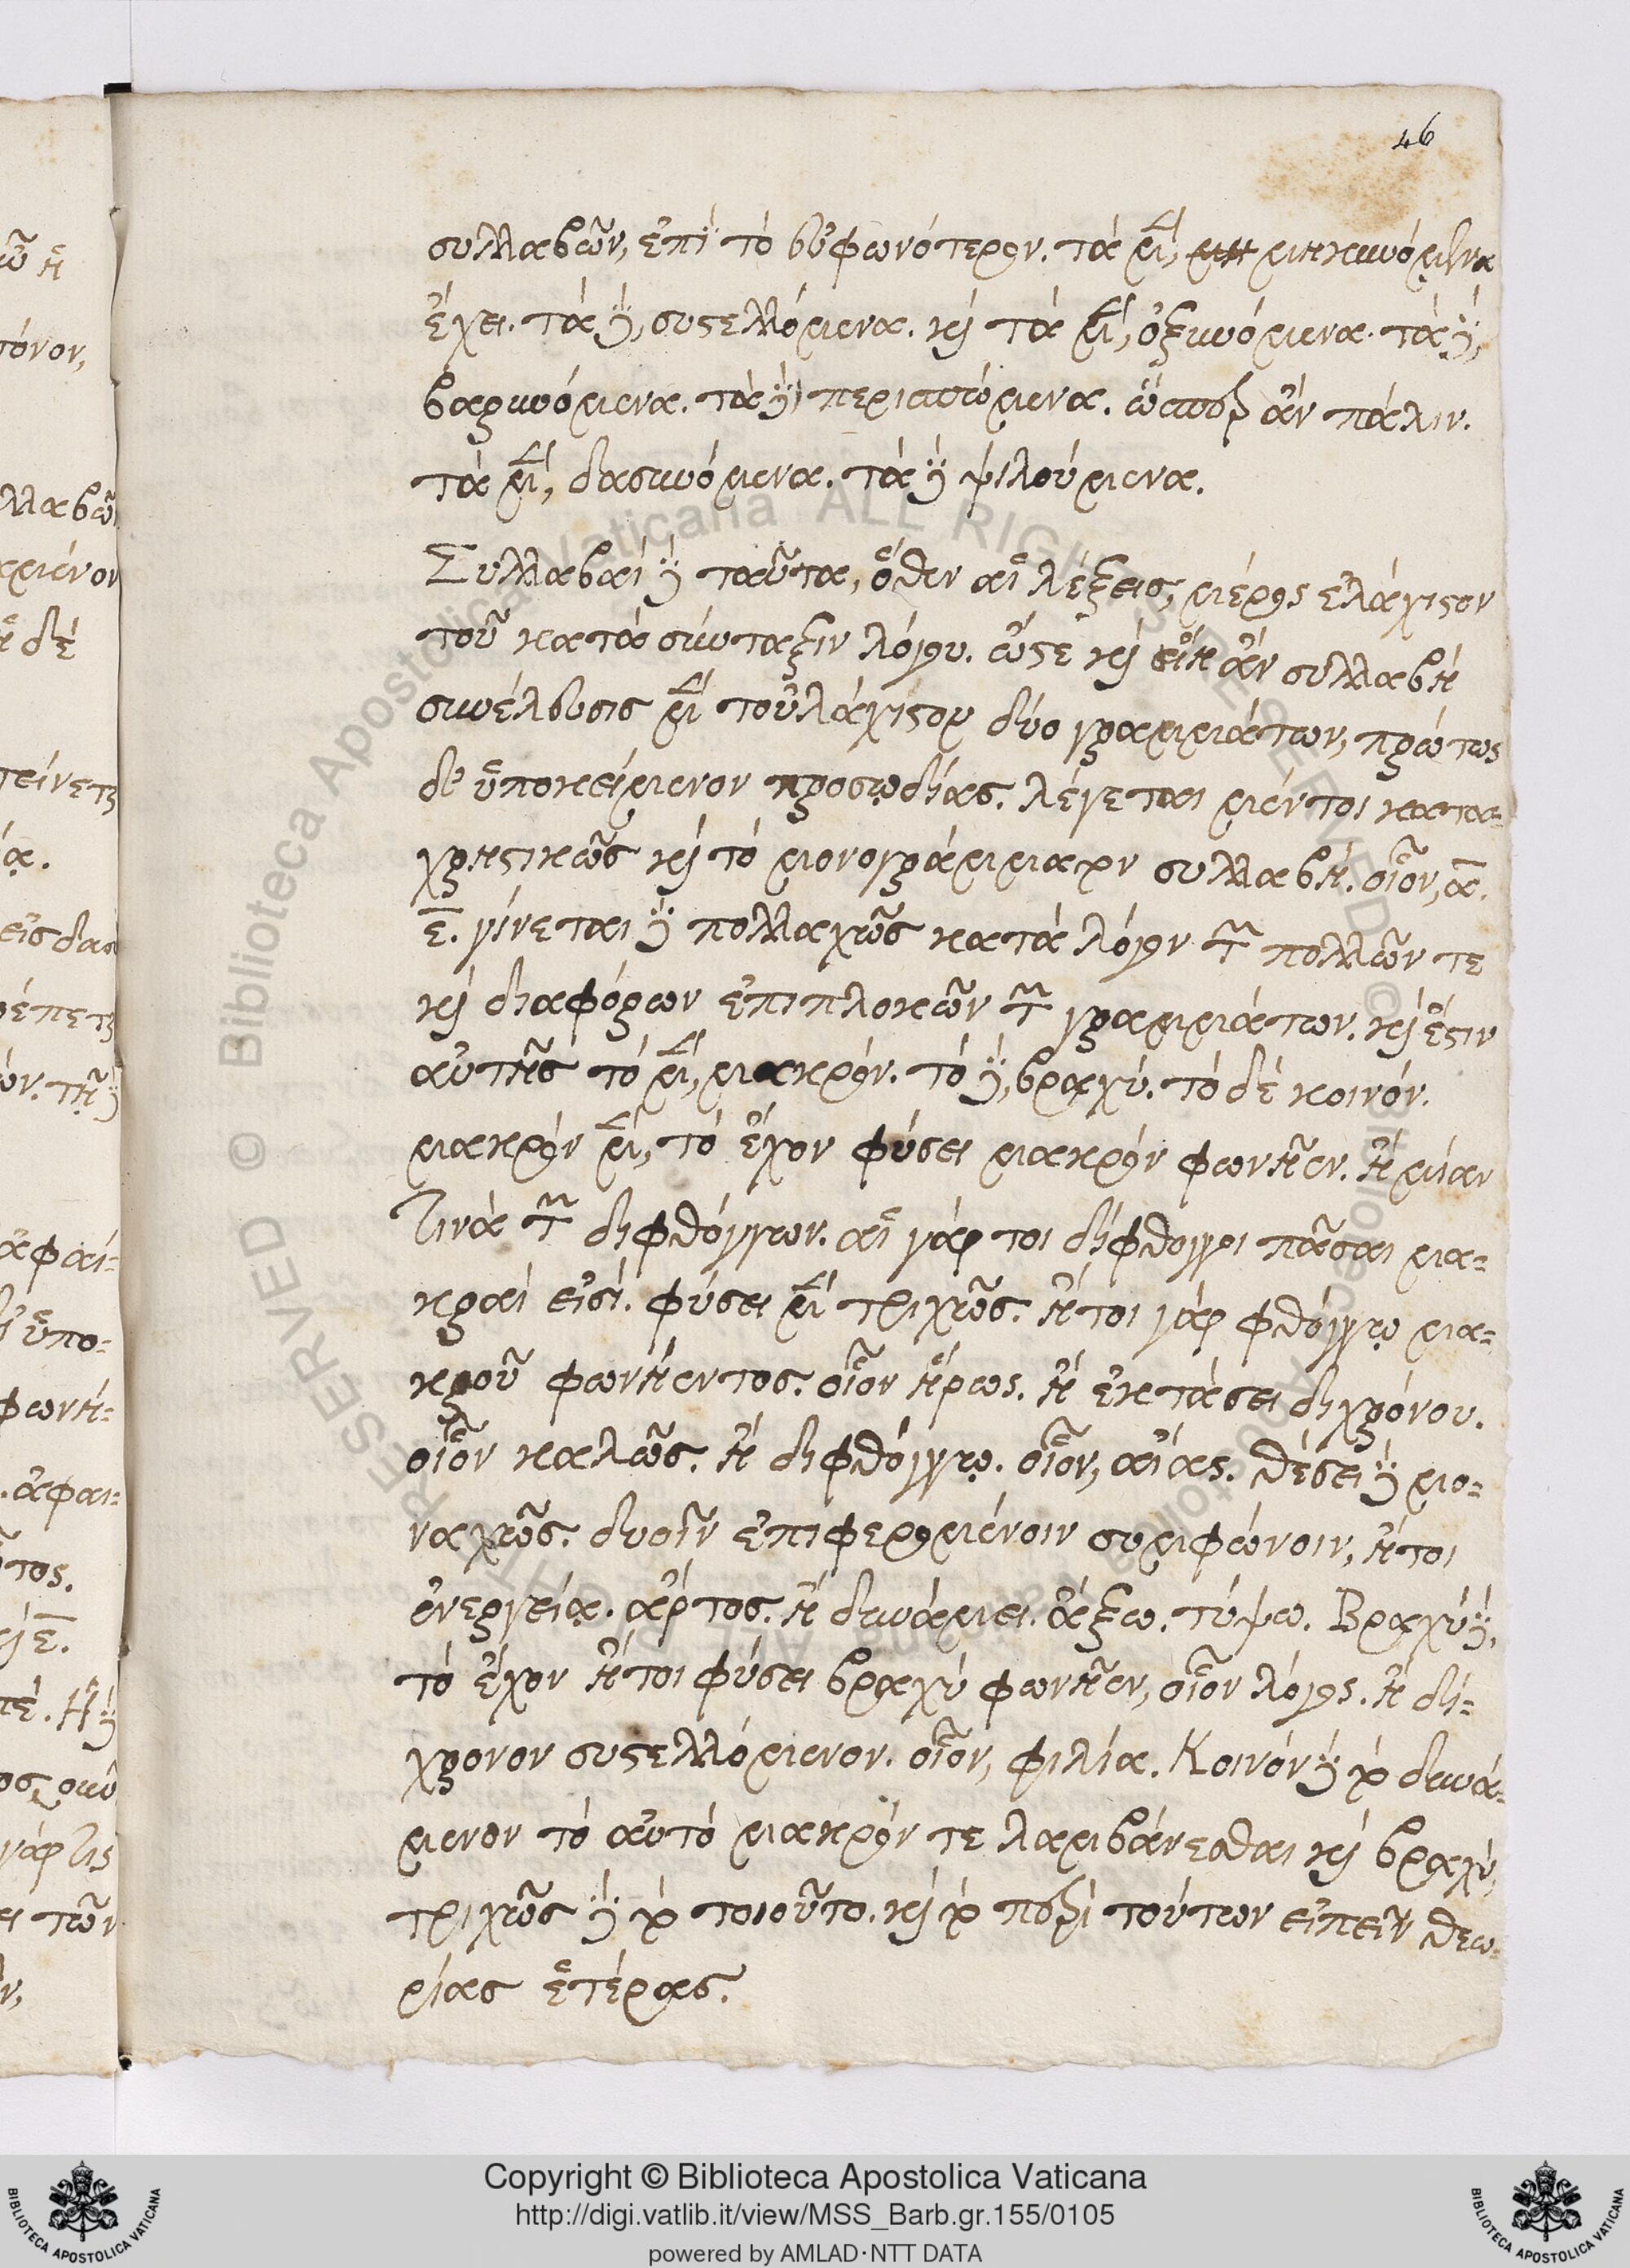 46
συλλαβῶν, ἐπὶ τὸ εὐφωνότερον. τὰ μὲν, μηκυνόμενα
ἔχει. τὰ δὲ, συστελλόμενα. καὶ τὰ μὲν, ὀξυνόμενα. τὰ δὲ,
βαρυνόμενα. τὰ δὲ περισπώμενα. ὥσπερ ἂν πάλιν.
τὰ μὲν, δασυνόμενα. τὰ δὲ ψιλούμενα.
Συλλαβαὶ δὲ ταῦτα, ὅθεν αἱ λέξεις, μέρος ἐλάχιστον
τοῦ κατὰ σύνταξιν λόγου. ὥστε καὶ εἴη ἂν συλλαβὴ
συνέλευσις μὲν τοὐλάχιστον δύο γραμμάτων, πρώτως
δ' ὑποκείμενον προσῳδίας. λέγεται μέντοι κατα-
χρηστικῶς καὶ τὸ μονογράμματον συλλαβή. οἷον, α.
ε. γίνεται δὲ πολλαχῶς κατὰ λόγον τῶν πολλῶν τε
καὶ διαφόρων ἐπιπλοκῶν τῶν γραμμάτων. καὶ ἔστιν
αὐτῆς τὸ μὲν, μακρόν. τὸ δὲ, βραχύ. τὸ δὲ κοινόν.
μακρὸν μὲν, τὸ ἔχον φύσει μακρὸν φωνῆεν. ἢ μίαν
τινὰ τῶν διφθόγγων. αἱ γάρ τοι δίφθογγοι πᾶσαι μα-
κραί εἰσι. φύσει μὲν τριχῶς. ἤτοι γὰρ φθόγγῳ μα-
κροῦ φωνήεντος. οἷον ἥρως. ἢ ἐκτάσει διχρόνου.
οἷον καλῶς. ἢ διφθόγγῳ. οἷον, αἴας. θέσει δὲ μο-
ναχῶς. δυοῖν ἐπιφερομένοιν συμφώνοιν, ἤτοι
ἐνεργείᾳ. ἄρτος. ἢ δυνάμει. ἄξω. τύψω. Βραχὺ δὲ,
τὸ ἔχον ἤτοι φύσει βραχὺ φωνῆεν, οἷον λόγος. ἢ δί-
χρονον συστελλόμενον. οἷον, φιλία. Κοινὸν δὲ τὸ δυνά-
μενον τὸ αὐτὸ μακρόν τε λαμβάνεσθαι καὶ βραχὺ,
τριχῶς δὲ τὸ τοιοῦτο. καὶ τὸ περὶ τούτων εἰπεῖν θεω-
ρίας ἑτέρας.
Copyright © Biblioteca Apostolica Vaticana
http://digi.vatlib.it/view/MSS_Barb.gr.155/0105
powered by AMLAD·NTT DATA